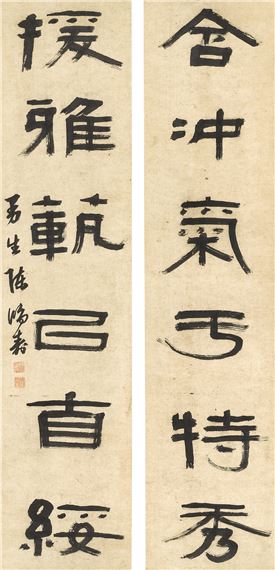 含沖氣亏特秀
援雅範㠯自綏
曼生陳鴻壽